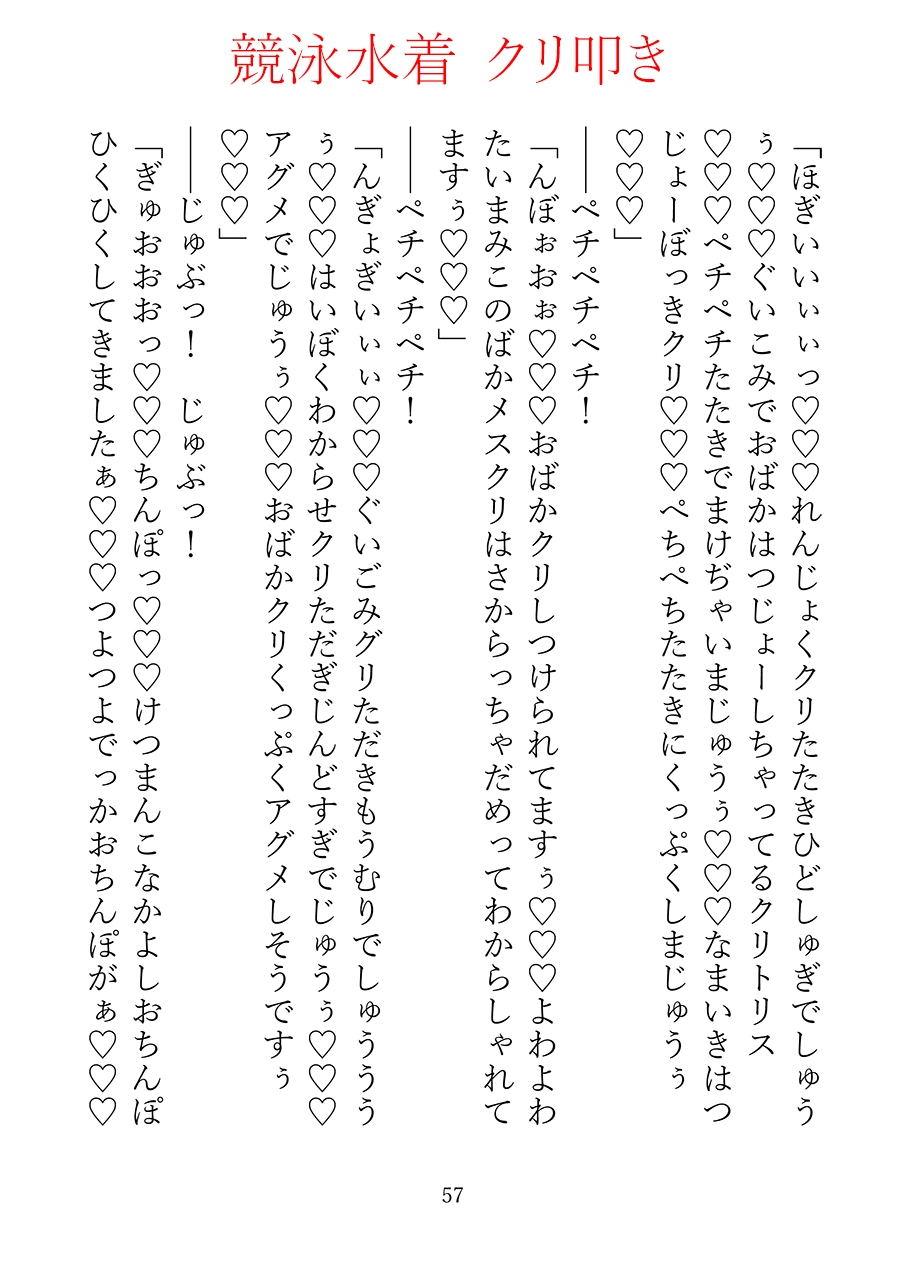 競泳水着 クリ叩き
「ほぎいいぃぃっ♡♡♡れんじょくクリたたきひどしゅぎでしゅう
ぅ♡♡♡ぐいこみでおばかはつじょーしちゃってるクリトリス
♡♡♡ペチペチたたきでまけぢゃいまじゅうぅ♡♡♡なまいきはつ
じょーぼっきクリ♡♡♡ぺちぺちたたきにくっぷくしまじゅうぅ
♡♡♡」
――ペチペチペチ！
「んぼぉおぉ♡♡♡おばかクリしつけられてますぅ♡♡♡よわよわ
たいまみこのばかメスクリはさからっちゃだめってわからしゃれて
ますぅ♡♡♡」
――ペチペチペチ！
「んぎょぎいぃぃ♡♡♡ぐいごみグリただきもうむりでしゅううう
ぅ♡♡♡はいぼくわからせクリただぎじんどすぎでじゅうぅ♡♡♡
アグメでじゅうぅ♡♡♡おばかクリくっぷくアグメしそうですぅ
♡♡♡」
――じゅぶっ！　じゅぶっ！
「ぎゅおおおっ♡♡♡ちんぽっ♡♡♡けつまんこなかよしおちんぽ
ひくひくしてきましたぁ♡♡♡つよつよでっかおちんぽがぁ♡♡♡
57